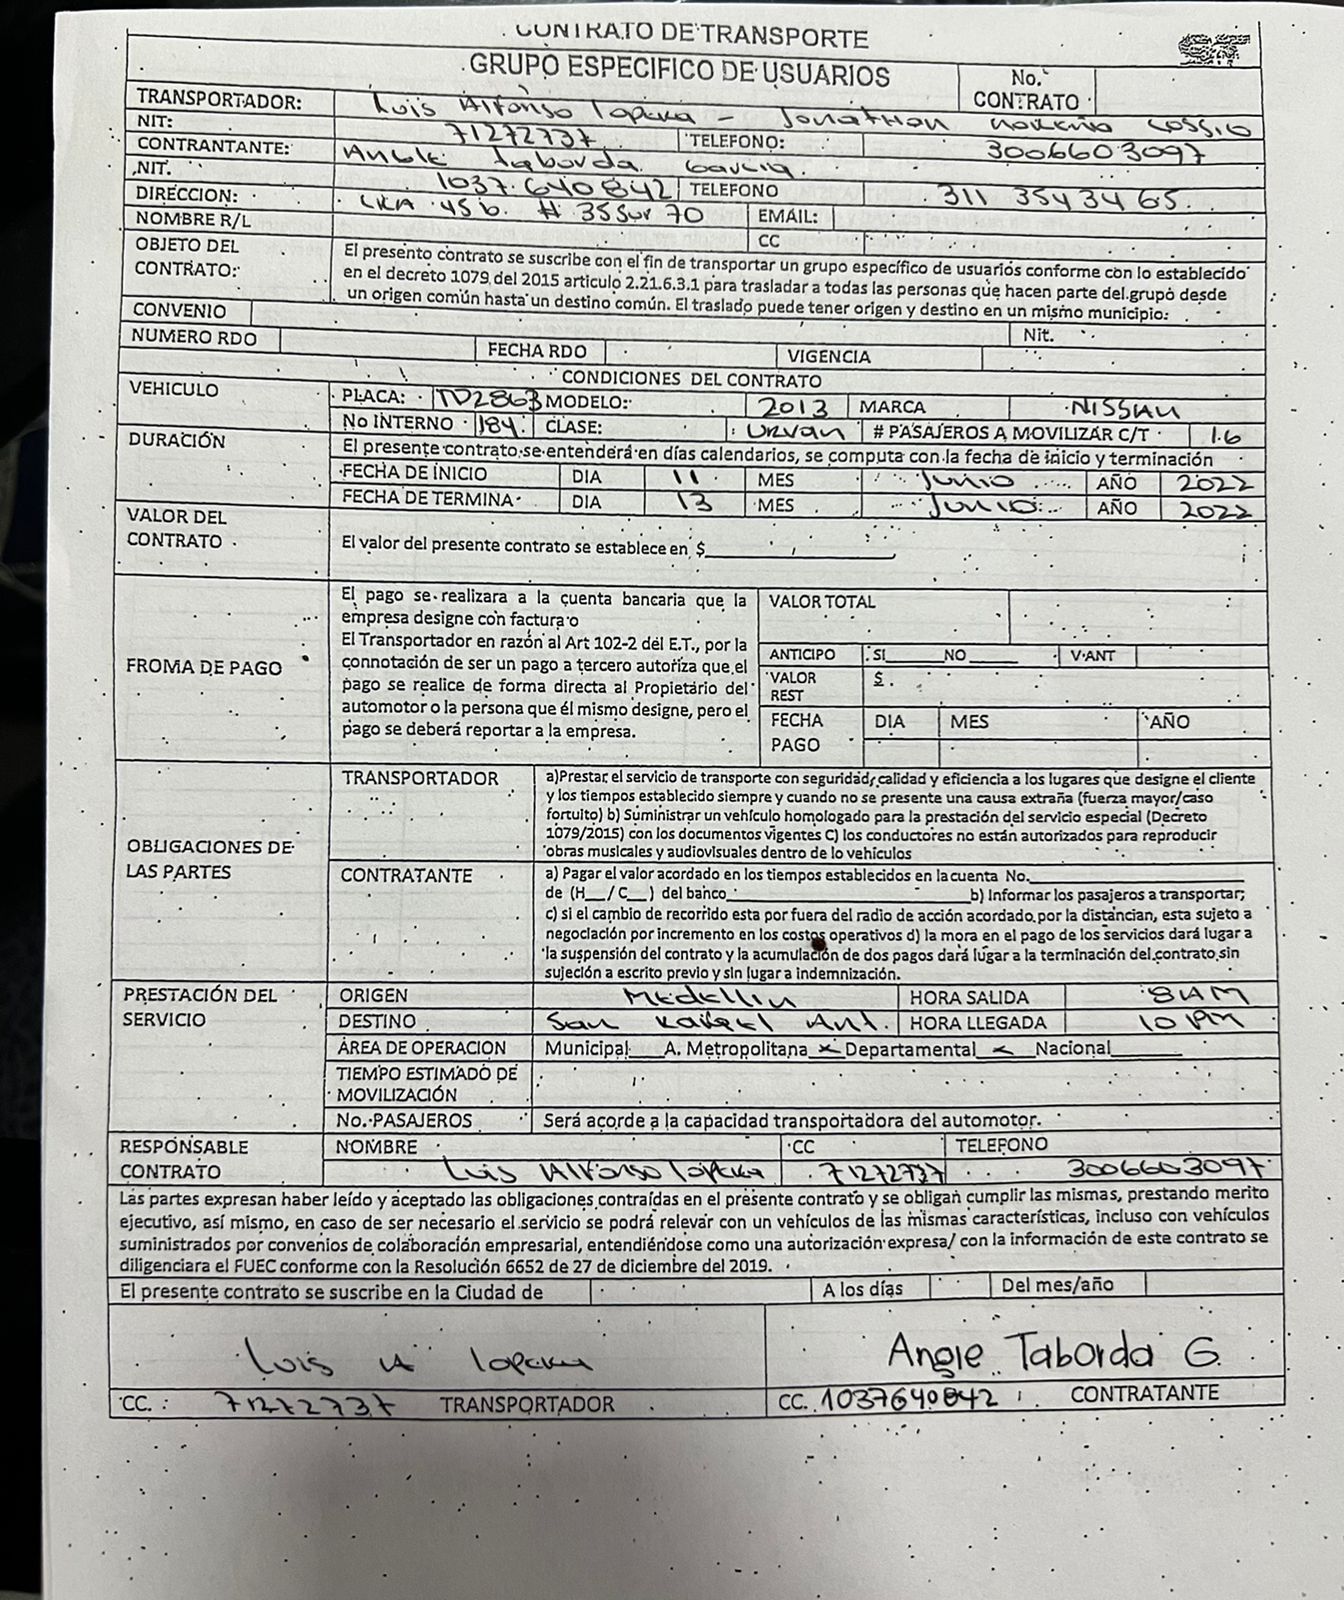 CONTRATO DE TRANSPORTE
GRUPO ESPECIFICO DE USUARIOS
No. CONTRATO
TRANSPORTADOR: Luis Alfonso Lopera - Jonathan Noreña Cossio
NIT: 71272737 TELEFONO: 3006603097
CONTRANTANTE: Angie Taborda Garcia.
NIT. 1037.640842 TELEFONO 311 354 34 65.
DIRECCION: CRA 45 b. # 35 Sur 70 EMAIL:
NOMBRE R/L CC
OBJETO DEL CONTRATO: El presento contrato se suscribe con el fin de transportar un grupo específico de usuarios conforme con lo establecido
en el decreto 1079 del 2015 articulo 2.21.6.3.1 para trasladar a todas las personas que hacen parte del grupo desde
un origen común hasta un destino común. El traslado puede tener origen y destino en un mismo municipio.
CONVENIO Nit.
NUMERO RDO FECHA RDO VIGENCIA
CONDICIONES DEL CONTRATO
VEHICULO PLACA: TD2863 MODELO: 2013 MARCA NISSAN
No INTERNO 184. CLASE: Urvan # PASAJEROS A MOVILIZAR C/T 16
DURACIÓN El presente contrato se entenderá en días calendarios, se computa con la fecha de inicio y terminación
FECHA DE INICIO DIA 11 MES Junio AÑO 2022
FECHA DE TERMINA DIA 13 MES Junio AÑO 2022
VALOR DEL CONTRATO El valor del presente contrato se establece en $
FROMA DE PAGO El pago se realizara a la cuenta bancaria que la
empresa designe con factura o
El Transportador en razón al Art 102-2 del E.T., por la
connotación de ser un pago a tercero autoriza que el
pago se realice de forma directa al Propietário del
automotor o la persona que él mismo designe, pero el
pago se deberá reportar a la empresa.
VALOR TOTAL
ANTICIPO SI____NO____ V.ANT
VALOR REST $
FECHA PAGO DIA MES AÑO
OBLIGACIONES DE LAS PARTES
TRANSPORTADOR a)Prestar el servicio de transporte con seguridad, calidad y eficiencia a los lugares que designe el cliente
y los tiempos establecido siempre y cuando no se presente una causa extraña (fuerza mayor/caso
fortuito) b) Suministrar un vehículo homologado para la prestación del servicio especial (Decreto
1079/2015) con los documentos vigentes C) los conductores no están autorizados para reproducir
obras musicales y audiovisuales dentro de lo vehículos
CONTRATANTE a) Pagar el valor acordado en los tiempos establecidos en la cuenta No.
de (H__/C__) del banco b) Informar los pasajeros a transportar;
c) si el cambio de recorrido esta por fuera del radio de acción acordado por la distancian, esta sujeto a
negociación por incremento en los costos operativos d) la mora en el pago de los servicios dará lugar a
la suspensión del contrato y la acumulación de dos pagos dará lugar a la terminación del contrato sin
sujeción a escrito previo y sin lugar a indemnización.
PRESTACIÓN DEL SERVICIO
ORIGEN Medellin HORA SALIDA 8AM
DESTINO San Rafael Ant. HORA LLEGADA 10 PM
ÁREA DE OPERACION Municipal___A. Metropolitana x Departamental x Nacional______
TIEMPO ESTIMADO DE MOVILIZACIÓN
No. PASAJEROS Será acorde a la capacidad transportadora del automotor.
RESPONSABLE CONTRATO NOMBRE CC TELEFONO
Luis Alfonso Lopera 71272737 3006603097
Las partes expresan haber leído y aceptado las obligaciones contraídas en el presente contrato y se obligan cumplir las mismas, prestando merito
ejecutivo, así mismo, en caso de ser necesario el servicio se podrá relevar con un vehículos de las mismas características, incluso con vehículos
suministrados por convenios de colaboración empresarial, entendiéndose como una autorización expresa/ con la información de este contrato se
diligenciara el FUEC conforme con la Resolución 6652 de 27 de diciembre del 2019.
El presente contrato se suscribe en la Ciudad de A los días Del mes/año
Luis A Lopera Angie Taborda G
CC. : 71272737 TRANSPORTADOR CC. 1037640842 CONTRATANTE